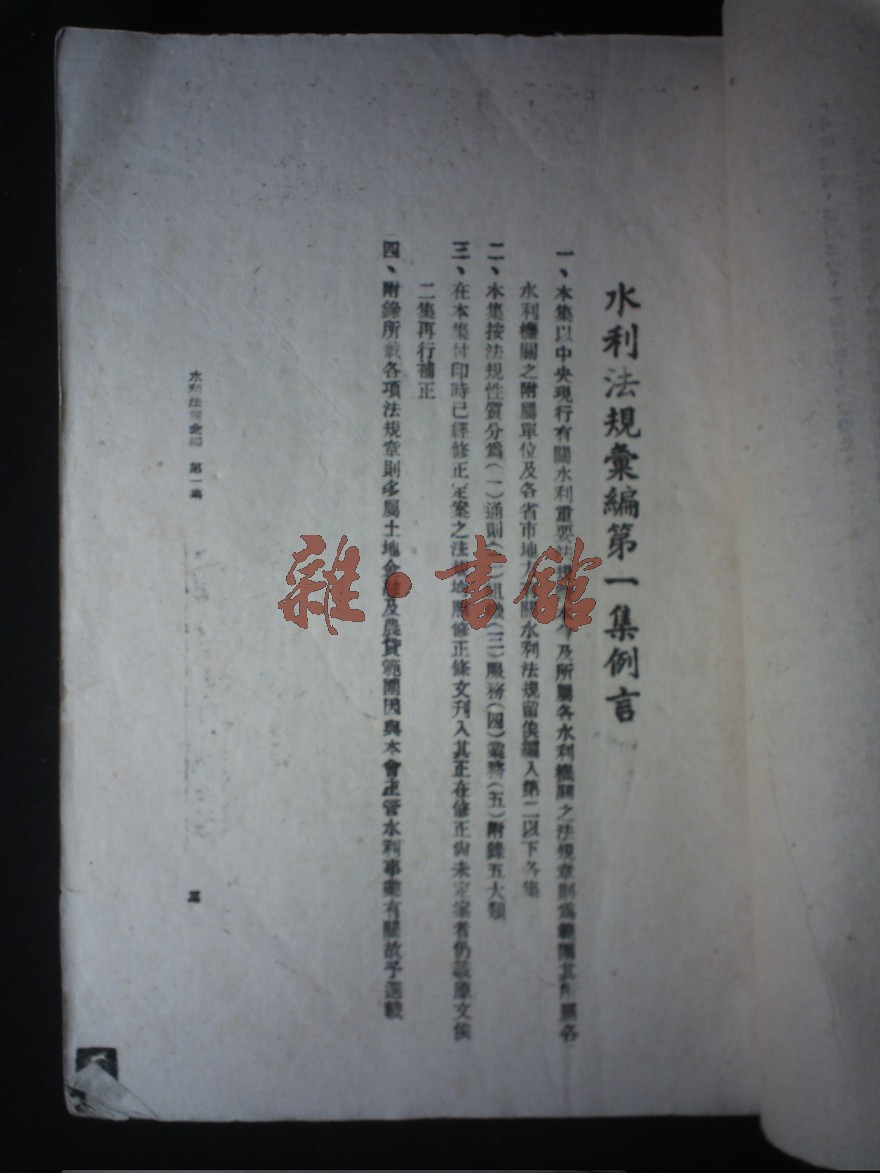 水利法規彙編第一集例言
一、本集以中央現行有關水利重要法規及所屬各水利機關之法規章則為範圍其所屬各
水利機關之附屬單位及各省市地方有關水利法規留俟編入第二以下各集
二、本集按法規性質分為(一)通則(二)組織(三)服務(四)業務(五)附錄五大類
三、在本集付印時已經修正定案之法規均照修正條文刊入其正在修正尚未定案者仍載原文俟
二集再行補正
四、附錄所載各項法規章則多屬土地金融及農貸範圍因與本會主管水利事業有關故予選載
水利法規彙編 第一集
三
雜·書館